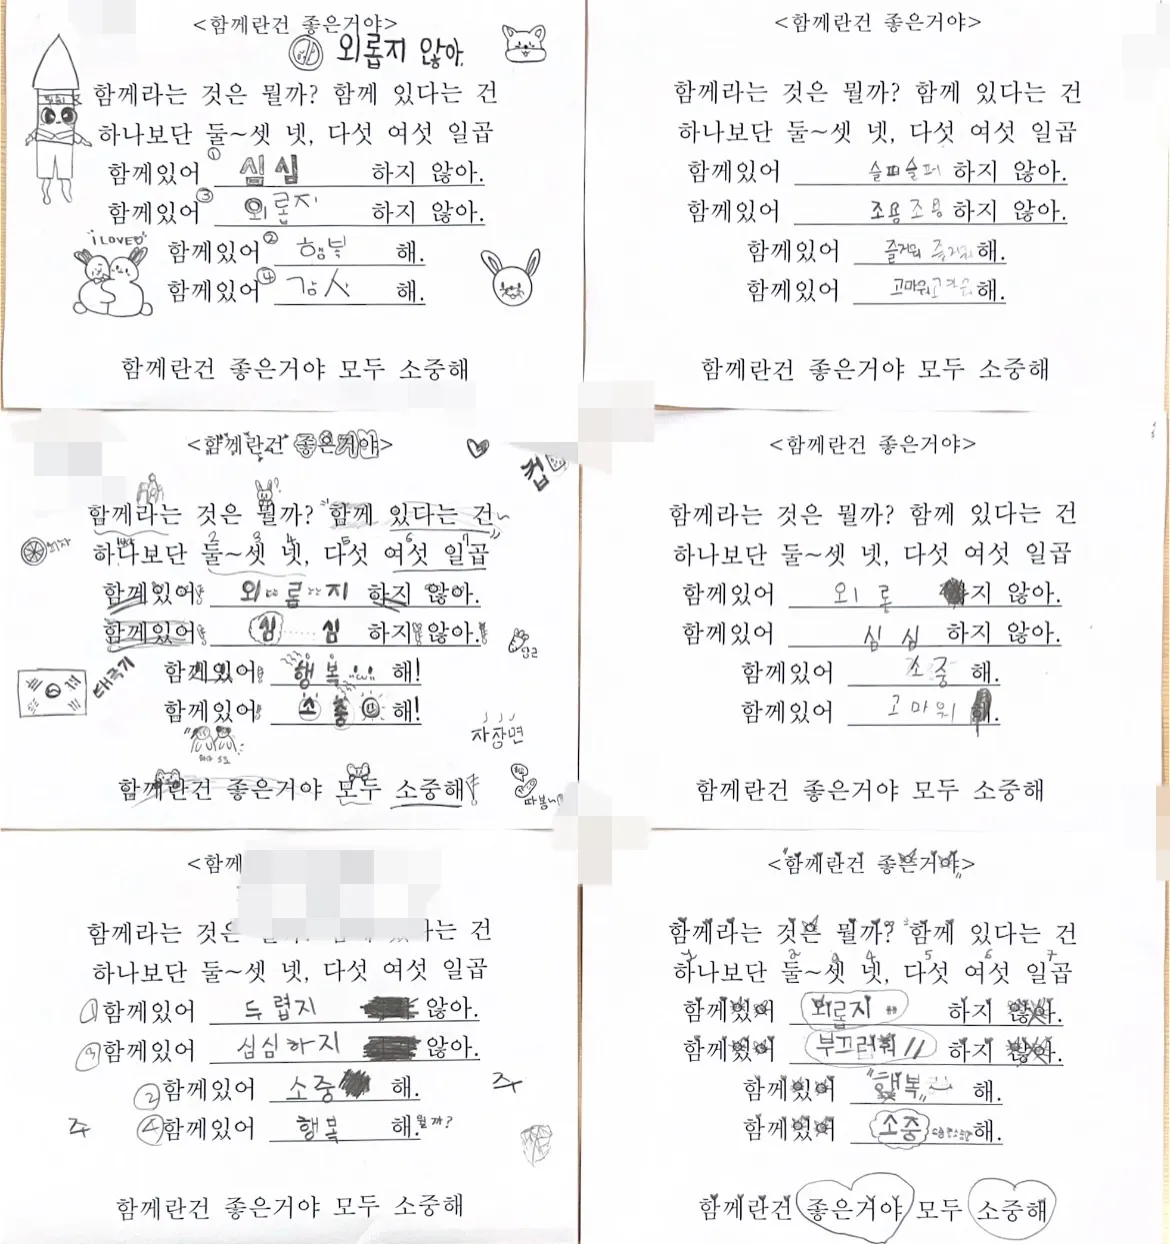 <함께란건 좋은거야>
외롭지 않아.
함께라는 것은 뭘까? 함께 있다는 건
하나보단 둘~셋 넷, 다섯 여섯 일곱
① 함께있어 심심 하지 않아.
③ 함께있어 외롭지 하지 않아.
I LOVE
② 함께있어 행복 해.
④ 함께있어 감사 해.
함께란건 좋은거야 모두 소중해
<함께란건 좋은거야>
함께라는 것은 뭘까? 함께 있다는 건
하나보단 둘~셋 넷, 다섯 여섯 일곱
함께있어 슬퍼슬퍼 하지 않아.
함께있어 조용조용 하지 않아.
함께있어 즐거워 즐거워 해.
함께있어 고마워고마워 해.
함께란건 좋은거야 모두 소중해
<함께란건 좋은거야>
컵
함께라는 것은 뭘까? 함께 있다는 건
2 3 4 5 6 7
하나보단 둘~셋 넷, 다섯 여섯 일곱
함께있어 외롭지 하지 않아.
함께있어 심심 하지 않아.
당근
태극기
함께있어 행복 해!
함께있어 소중 해!
자장면
함께란건 좋은거야 모두 소중해
따봉
<함께란건 좋은거야>
함께라는 것은 뭘까? 함께 있다는 건
하나보단 둘~셋 넷, 다섯 여섯 일곱
함께있어 외롭 지 않아.
함께있어 심심 하지 않아.
함께있어 소중 해.
함께있어 고마워
함께란건 좋은거야 모두 소중해
<함께
함께라는 것은 는 건
하나보단 둘~셋 넷, 다섯 여섯 일곱
① 함께있어 두렵지 않아.
③ 함께있어 심심하지 않아.
② 함께있어 소중 해.
④ 함께있어 행복 해. 뭘까?
함께란건 좋은거야 모두 소중해
<"함께란건 좋은거야">
함께라는 것은 뭘까? 함께 있다는 건
1 2 3 4 5 6 7
하나보단 둘~셋 넷, 다섯 여섯 일곱
함께있어 외롭지 하지 않아.
함께있어 부끄러워 하지 않아.
함께있어 "행복" 해.
함께있어 소중 해.
함께란건 좋은거야 모두 소중해